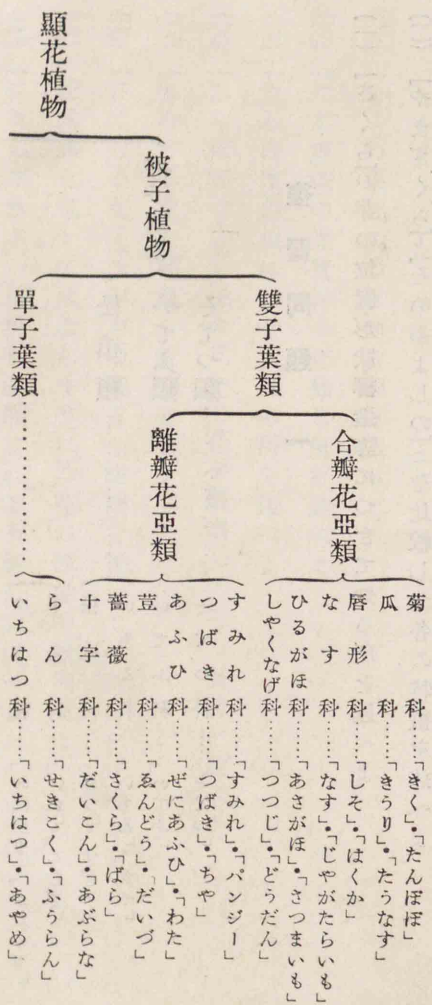 顯花植物
被子植物
雙子葉類
合瓣花亞類
菊科……「きく」・「たんぽぽ」
瓜科……「きうり」・「たうなす」
唇形科……「しそ」・「はくか」
なす科……「なす」・「じやがたらいも」
ひるがほ科……「あさがほ」・「さつまいも」
しやくなげ科……「つつじ」・「どうだん」
離瓣花亞類
すみれ科……「すみれ」・「パンジー」
つばき科……「つばき」・「ちや」
あふひ科……「ぜにあふひ」・「わた」
荳科……「ゑんどう」・「だいづ」
薔薇科……「さくら」・「ばら」
十字科……「だいこん」・「あぶらな」
單子葉類…………
らん科……「せきこく」・「ふうらん」
いちはつ科……「いちはつ」・「あやめ」